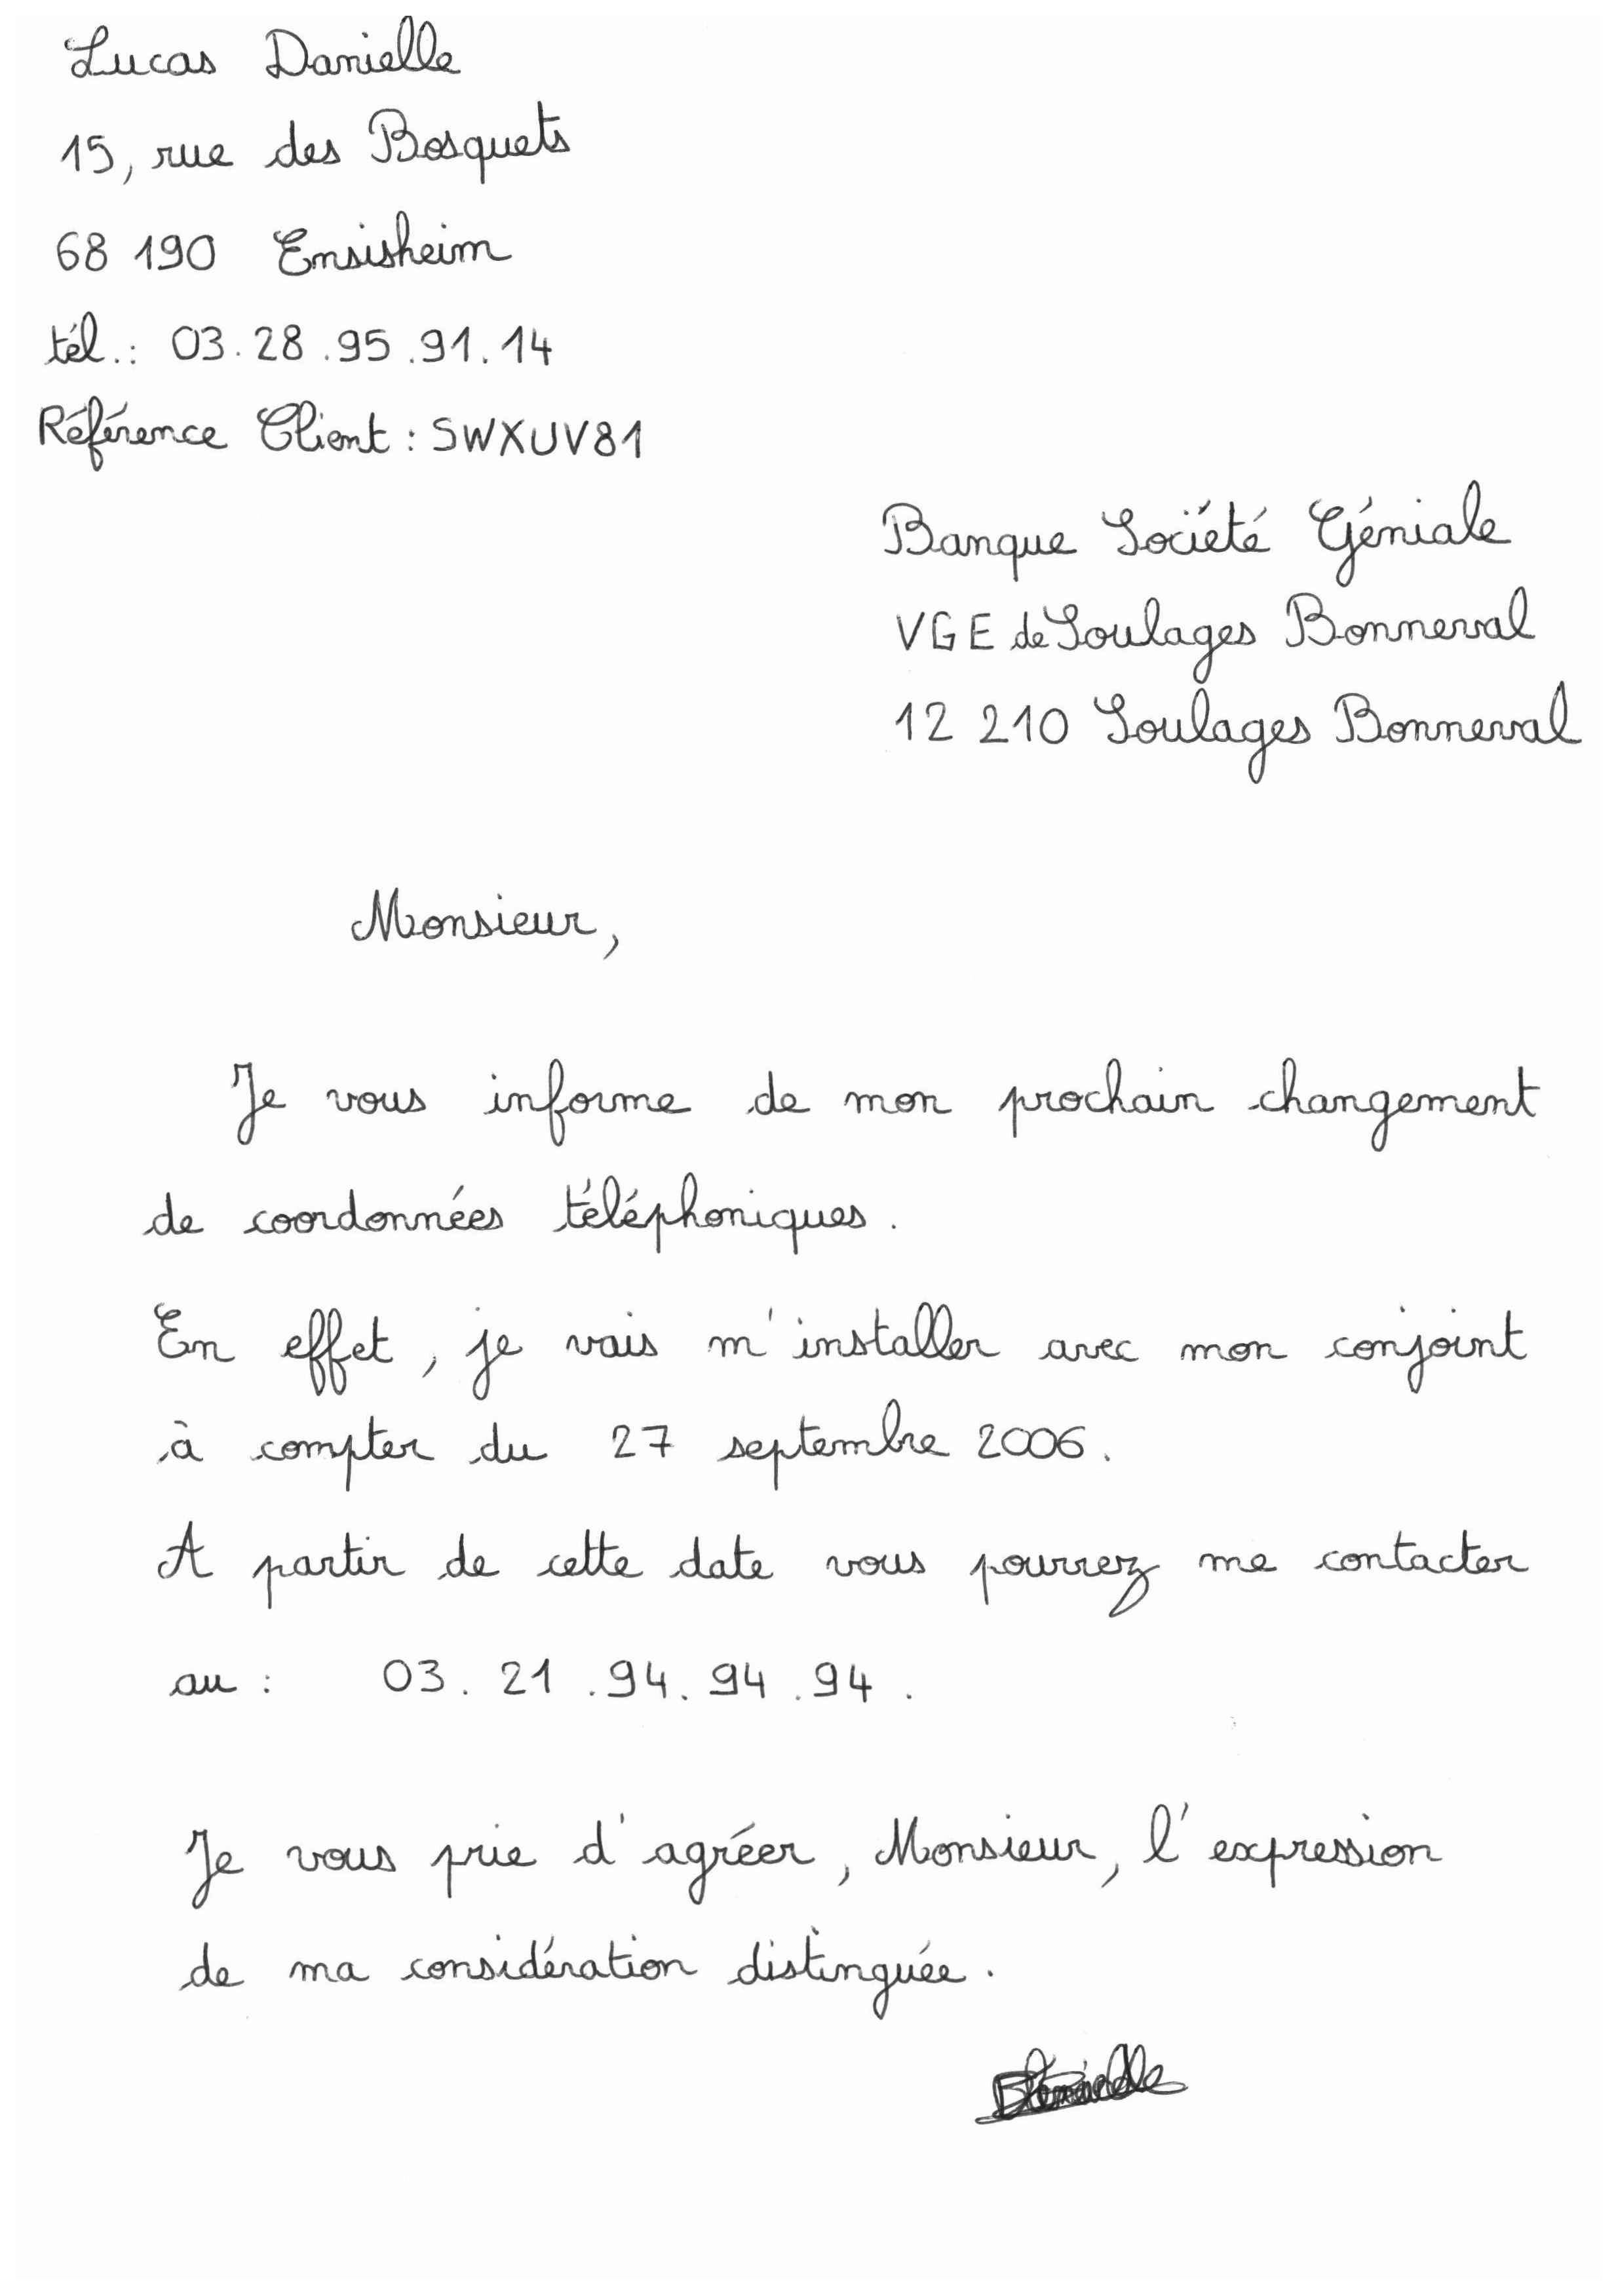 Lucas Danielle
15, rue des Bosquets
68 190 Ensisheim
tél.: 03.28.95.91.14
Référence Client : SWXUV81
Banque Société Géniale
VGE de Soulages Bonneval
12 210 Soulages Bonneval
Monsieur,
Je vous informe de mon prochain changement
de coordonnées téléphoniques.
En effet, je vais m'installer avec mon conjoint
à compter du 27 septembre 2006.
A partir de cette date vous pourrez me contacter
au : 03. 21 .94. 94 .94 .
Je vous prie d'agréer, Monsieur, l'expression
de ma considération distinguée.